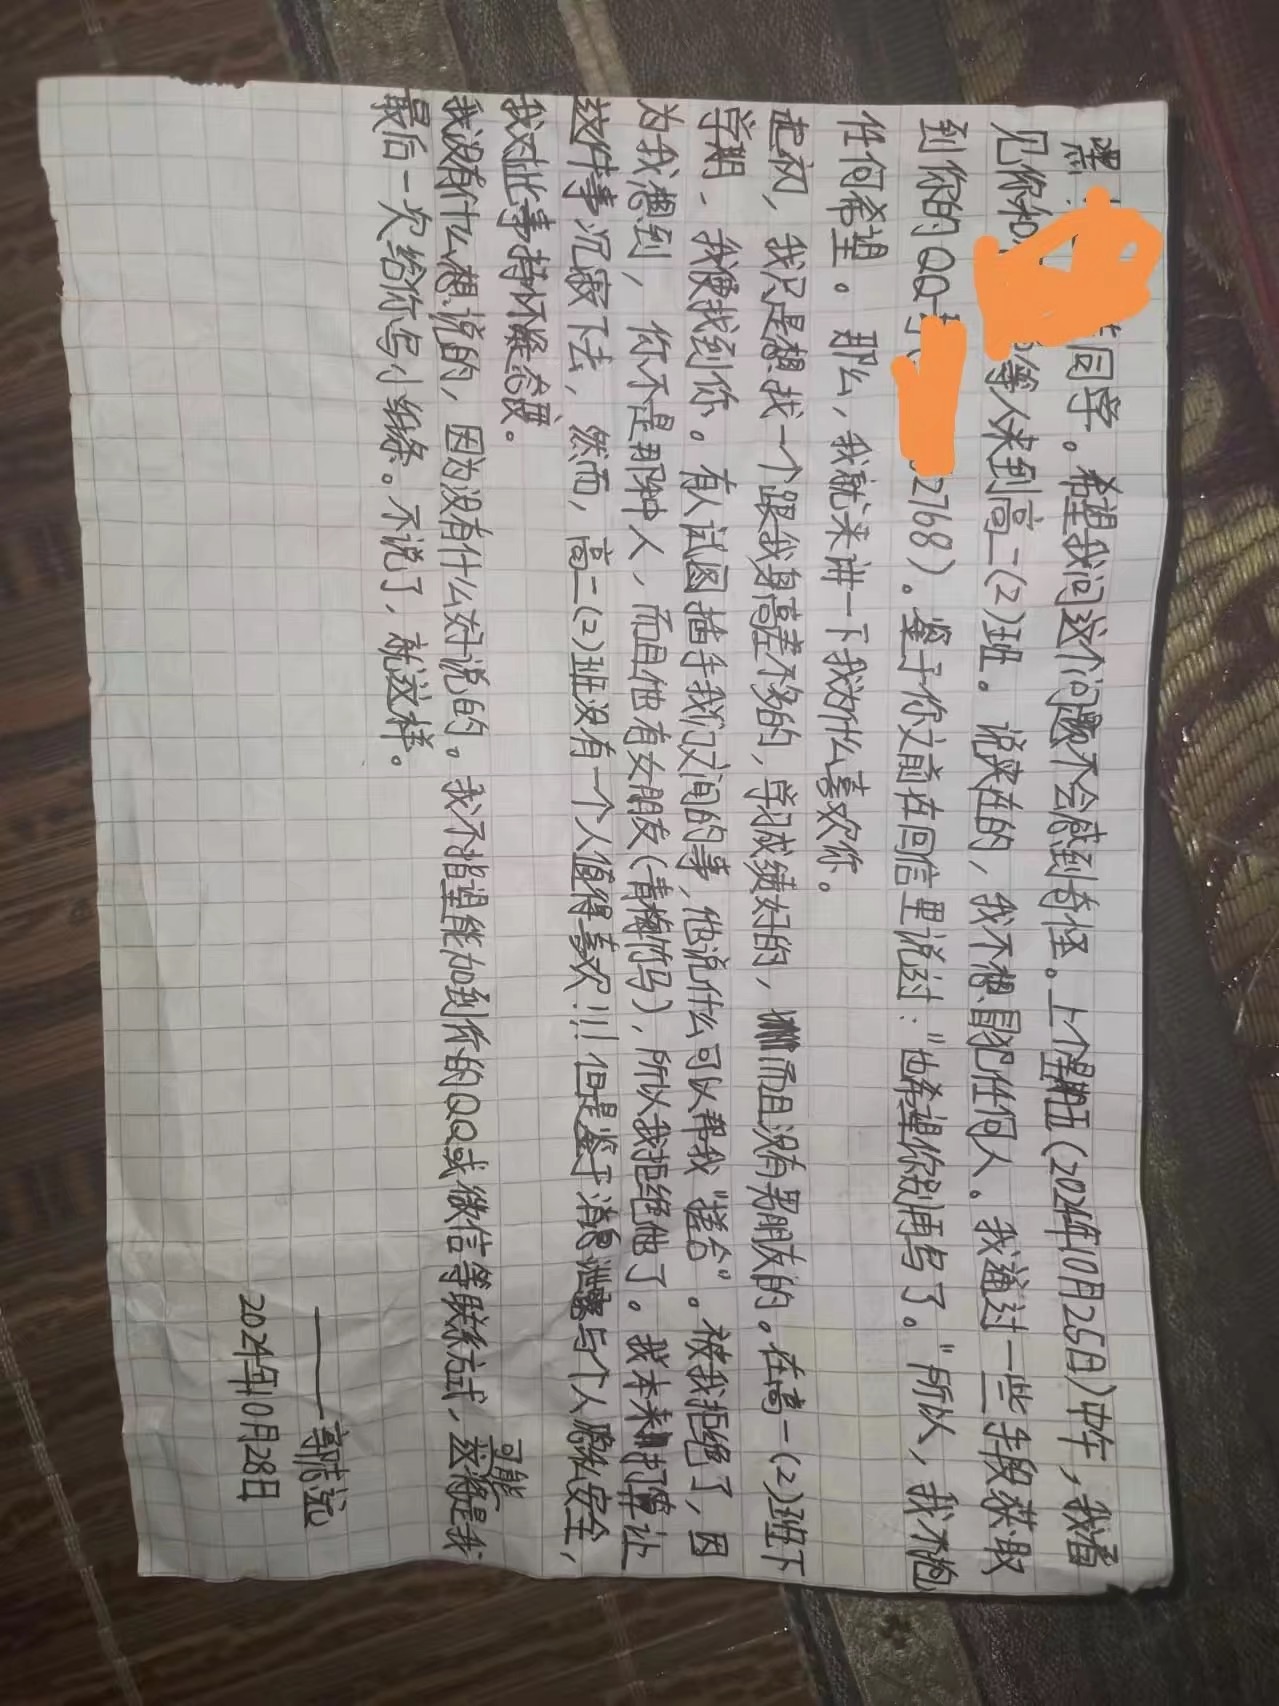 嘿
同学。希望我问这个问题不会感到奇怪。上个星期五(2024年10月25日)中午,我看
见你和等人来到高二(2)班。说实在的,我不想冒犯任何人。我通过一些手段获取
到你的QQ号2768)。鉴于你之前在回信里说过:“也希望你别再写了。”所以,我不抱
任何希望。那么,我就来讲一下我为什么喜欢你。
起初,我只是想找一个跟我身高差不多的,学习成绩好的,而且没有男朋友的。在高一(2)班下
学期,我便找到你。有人试图插手我们之间的事,他说什么可以帮我“搓合”。被我拒绝了,因
为我想到,你不是那种人,而且他有女朋友(青梅竹马),所以我拒绝他了。我本来打算让
这件事沉寂下去,然而,高二(2)班没有一个人值得喜欢!!!但是鉴于消息泄露与个人隐私安全,
我对此事持怀疑态度。
我没有什么想说的,因为没有什么好说的。我不指望能加到你的QQ或微信等联系方式,这可能将是我
最后一次给你写小纸条。不说了,就这样。
——郭志远
2024年10月28日